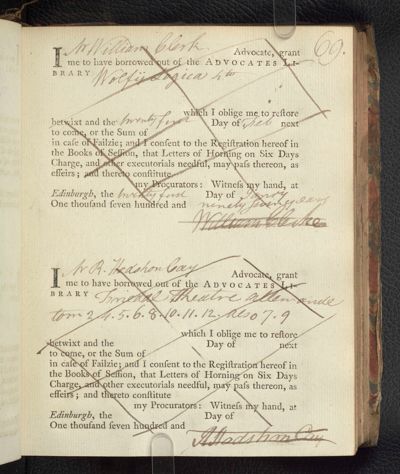 69.
I Mr William Clerk Advocate, grant
me to have borrowed out of the ADVOCATES LI-
BRARY Wolfij Logica 4to
which I oblige me to reſtore
betwixt and the twenty first Day of Feb next
to come, or the Sum of
in caſe of Failzie; and I conſent to the Regiſtration hereof in
the Books of Seſſion, that Letters of Horning on Six Days
Charge, and other executorials needful, may paſs thereon, as
effeirs; and thereto conſtitute
my Procurators: Witneſs my hand, at
Edinburgh, the twenty first Day of Janry
One thouſand ſeven hundred and ninety seven years
William Clerk
I Mr R. Hodshon Cay Advocate, grant
me to have borrowed out of the ADVOCATES LI-
BRARY Theatre allemande
tom 2 4. 5. 6. 8. 10. 11. 12. Also 7. 9
which I oblige me to reſtore
betwixt and the Day of next
to come, or the Sum of
in caſe of Failzie; and I conſent to the Regiſtration hereof in
the Books of Seſſion, that Letters of Horning on Six Days
Charge, and other executorials needful, may paſs thereon, as
effeirs; and thereto conſtitute
my Procurators: Witneſs my hand, at
Edinburgh, the Day of
One thouſand ſeven hundred and
R Hodshon Cay